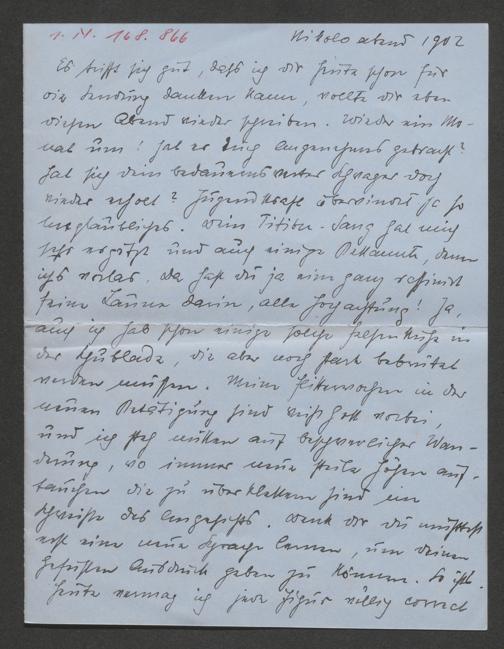 1. N. 168.866
Nikolo abend 1902
Es trifft sich gut, daß ich dir heute schon für
die Sendung danken kann, wollte dir eben
diesen Abend wieder schreiben. Wieder ein Mo-
nat um! Hat er Euch Angenehmes gebracht?
Hat sich dein bedauernswerter Schwager doch
wieder erholt? Jugendkraft überwindet ja so
Unglaubliches. Dein Sang hat mich
sehr ergötzt und auch einige Bekannte, denen
ichs vorlas. Da hast du ja eine ganz raffiniert
feine Laune darin, alle Hochachtung! Ja,
auch ich hab schon einige solche in
der Schublade, die aber noch stark bebrütet
werden müssen. Meine Flitterwochen in der
neuen Betätigung sind weiß Gott vorbei,
und ich steh mitten auf beschwerlicher Wan-
derung, wo immer neue steile Höhen auf-
tauchen die zu überklettern sind im
Schweiße des Angesichts. Denk dir du müßtest
erst eine neue Sprache lernen, um deinen
Gefühlen Ausdruck geben zu können. So ists.
Heute vermag ich jede Figur völlig correct